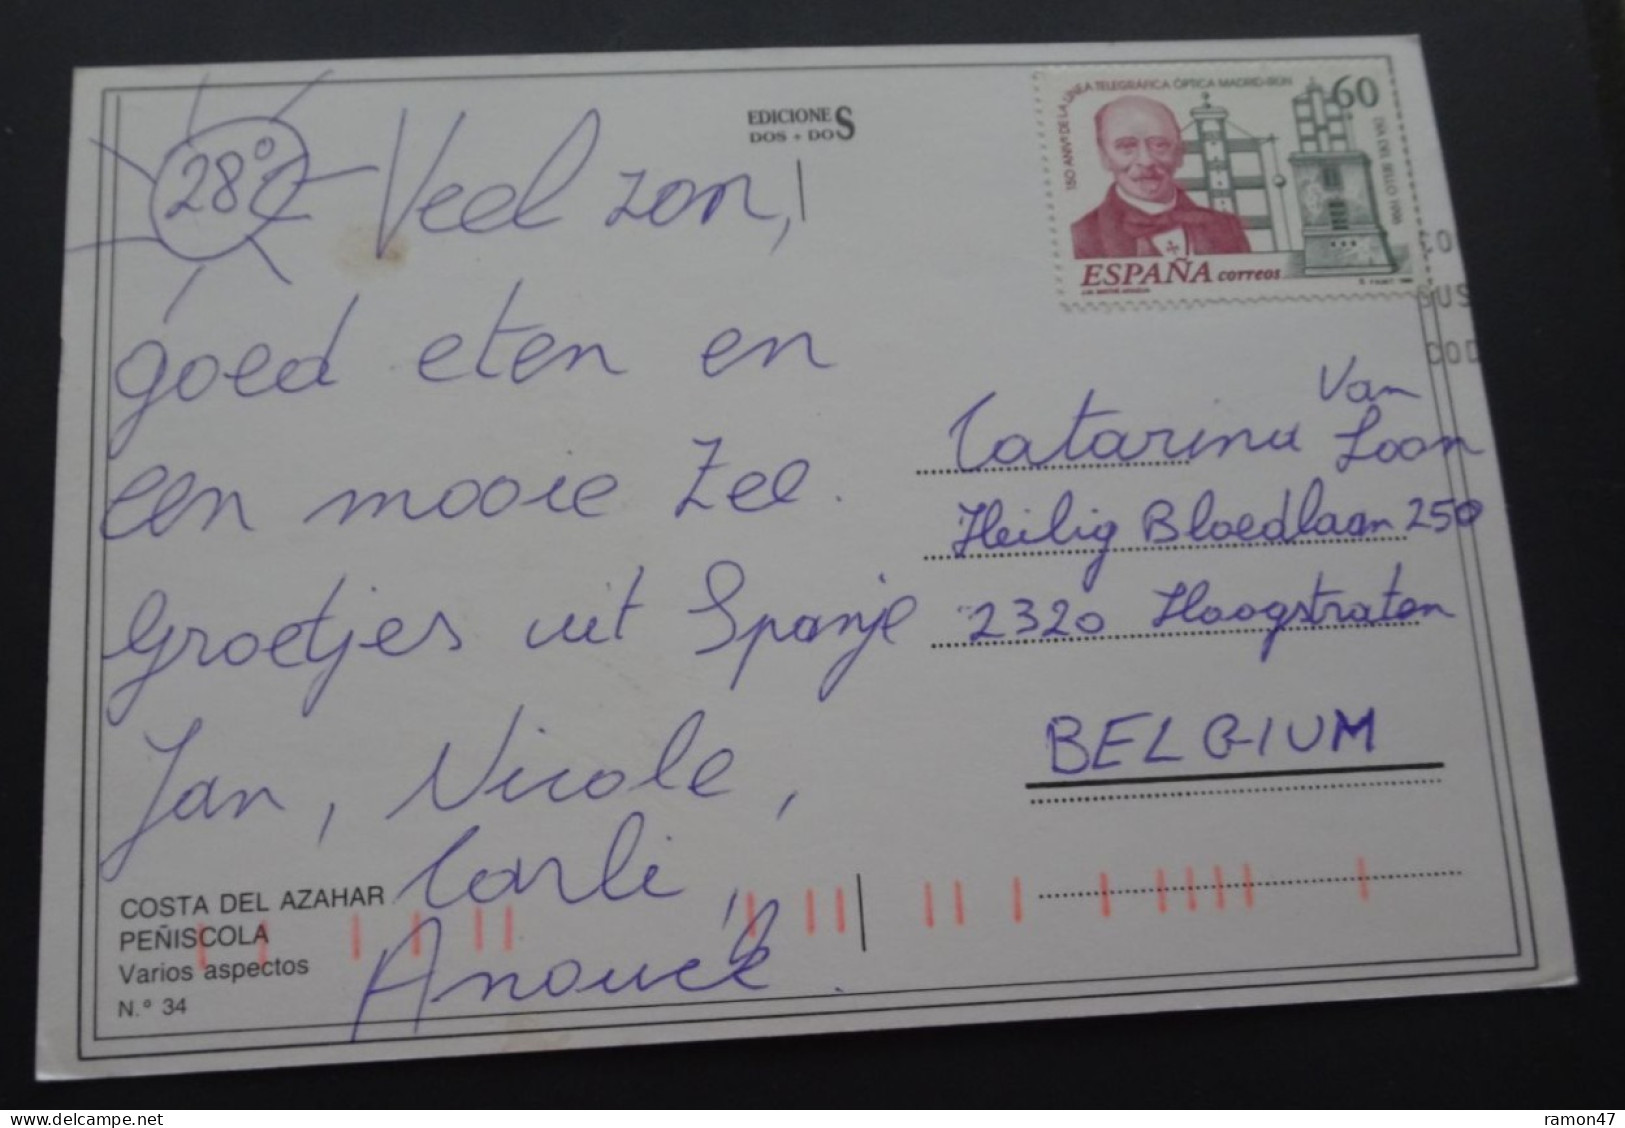 28°C
Veel zon,
goed eten en
een mooie zee.
Groetjes uit Spanje
Jan, Nicole,
Carli,
Anouck.
COSTA DEL AZAHAR
PEÑISCOLA
Varios aspectos
N.° 34
EDICIONES
DOS + DOS
150 ANIV. DE LA LINEA TELEGRÁFICA ÓPTICA MADRID-IRÚN
60
DIA DEL SELLO 1996
ESPAÑA correos
Van
Catarina Loon
Heilig Bloedlaan 250
2320 Hoogstraten
BELGIUM
delcampe.net
ramon47